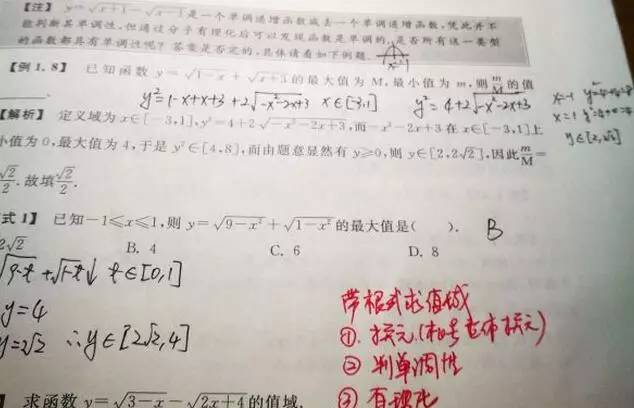 【注】 y=√x+1-√x-1是一个单调递增函数减去一个单调递增函数,凭此并不
能判断其单调性,但通过分子有理化后可以发现函数是单调的,是否所有这一类型
的函数都具有单调性呢?答案是否定的,具体请看如下例题.
【例1.8】 已知函数 y=√1-x+√x+3的最大值为 M,最小值为 m,则m/M的值
y²=1-x+x+3+2√-x²-2x+3 x∈[-3,1] y²=4+2√-x²-2x+3
x=-1 y²=4+4=8
x=1 y²=4+0=4
y∈[2,2√2]
【解析】 定义域为x∈[-3,1],y²=4+2√-x²-2x+3,而-x²-2x+3在x∈[-3,1]上
小值为0,最大值为4,于是 y²∈[4,8],而由题意显然有 y≥0,则 y∈[2,2√2],因此m/M=
√2/2.故填√2/2.
式1】 已知-1≤x≤1,则 y=√9-x²+√1-x²的最大值是( ). B
2√2 B. 4 C. 6 D. 8
√9-t+√1-t↓ t∈[0,1]
y=4
y=2√2 ∴y∈[2√2,4]
带根式求值域
①.换元.(根号整体换元)
②判单调性
③有理化
求函数 y=√3-x-√2x+4的值域.